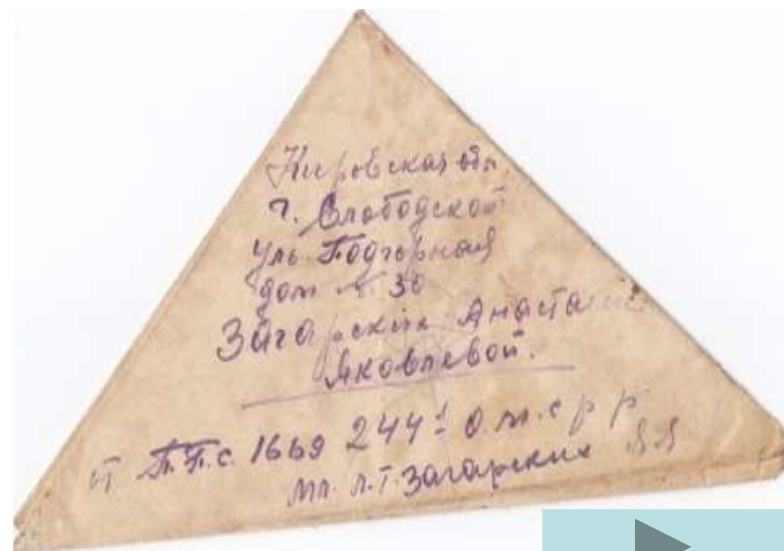 Кировская обл.
г. Слободской
уль Подгорная
дом № 30
Загарских Анастасие
Яковлевой.
от П.П.с. 1669 244
мл. л.т. Загарских